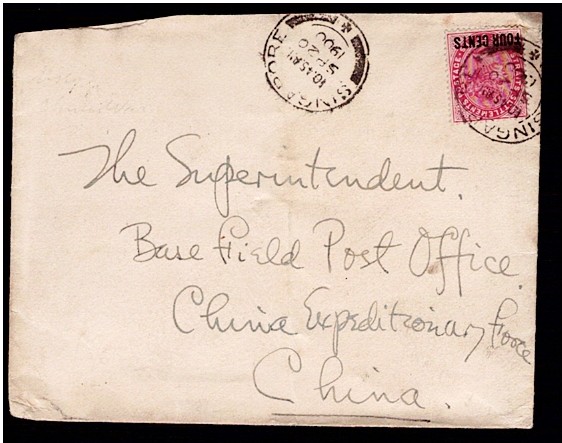 SINGAPORE
10.45AM
SP 20
1900
FOUR CENTS
POSTAGE
SINGA
The Superintendent.
Base Field Post Office.
China Expeditionary Force
China.